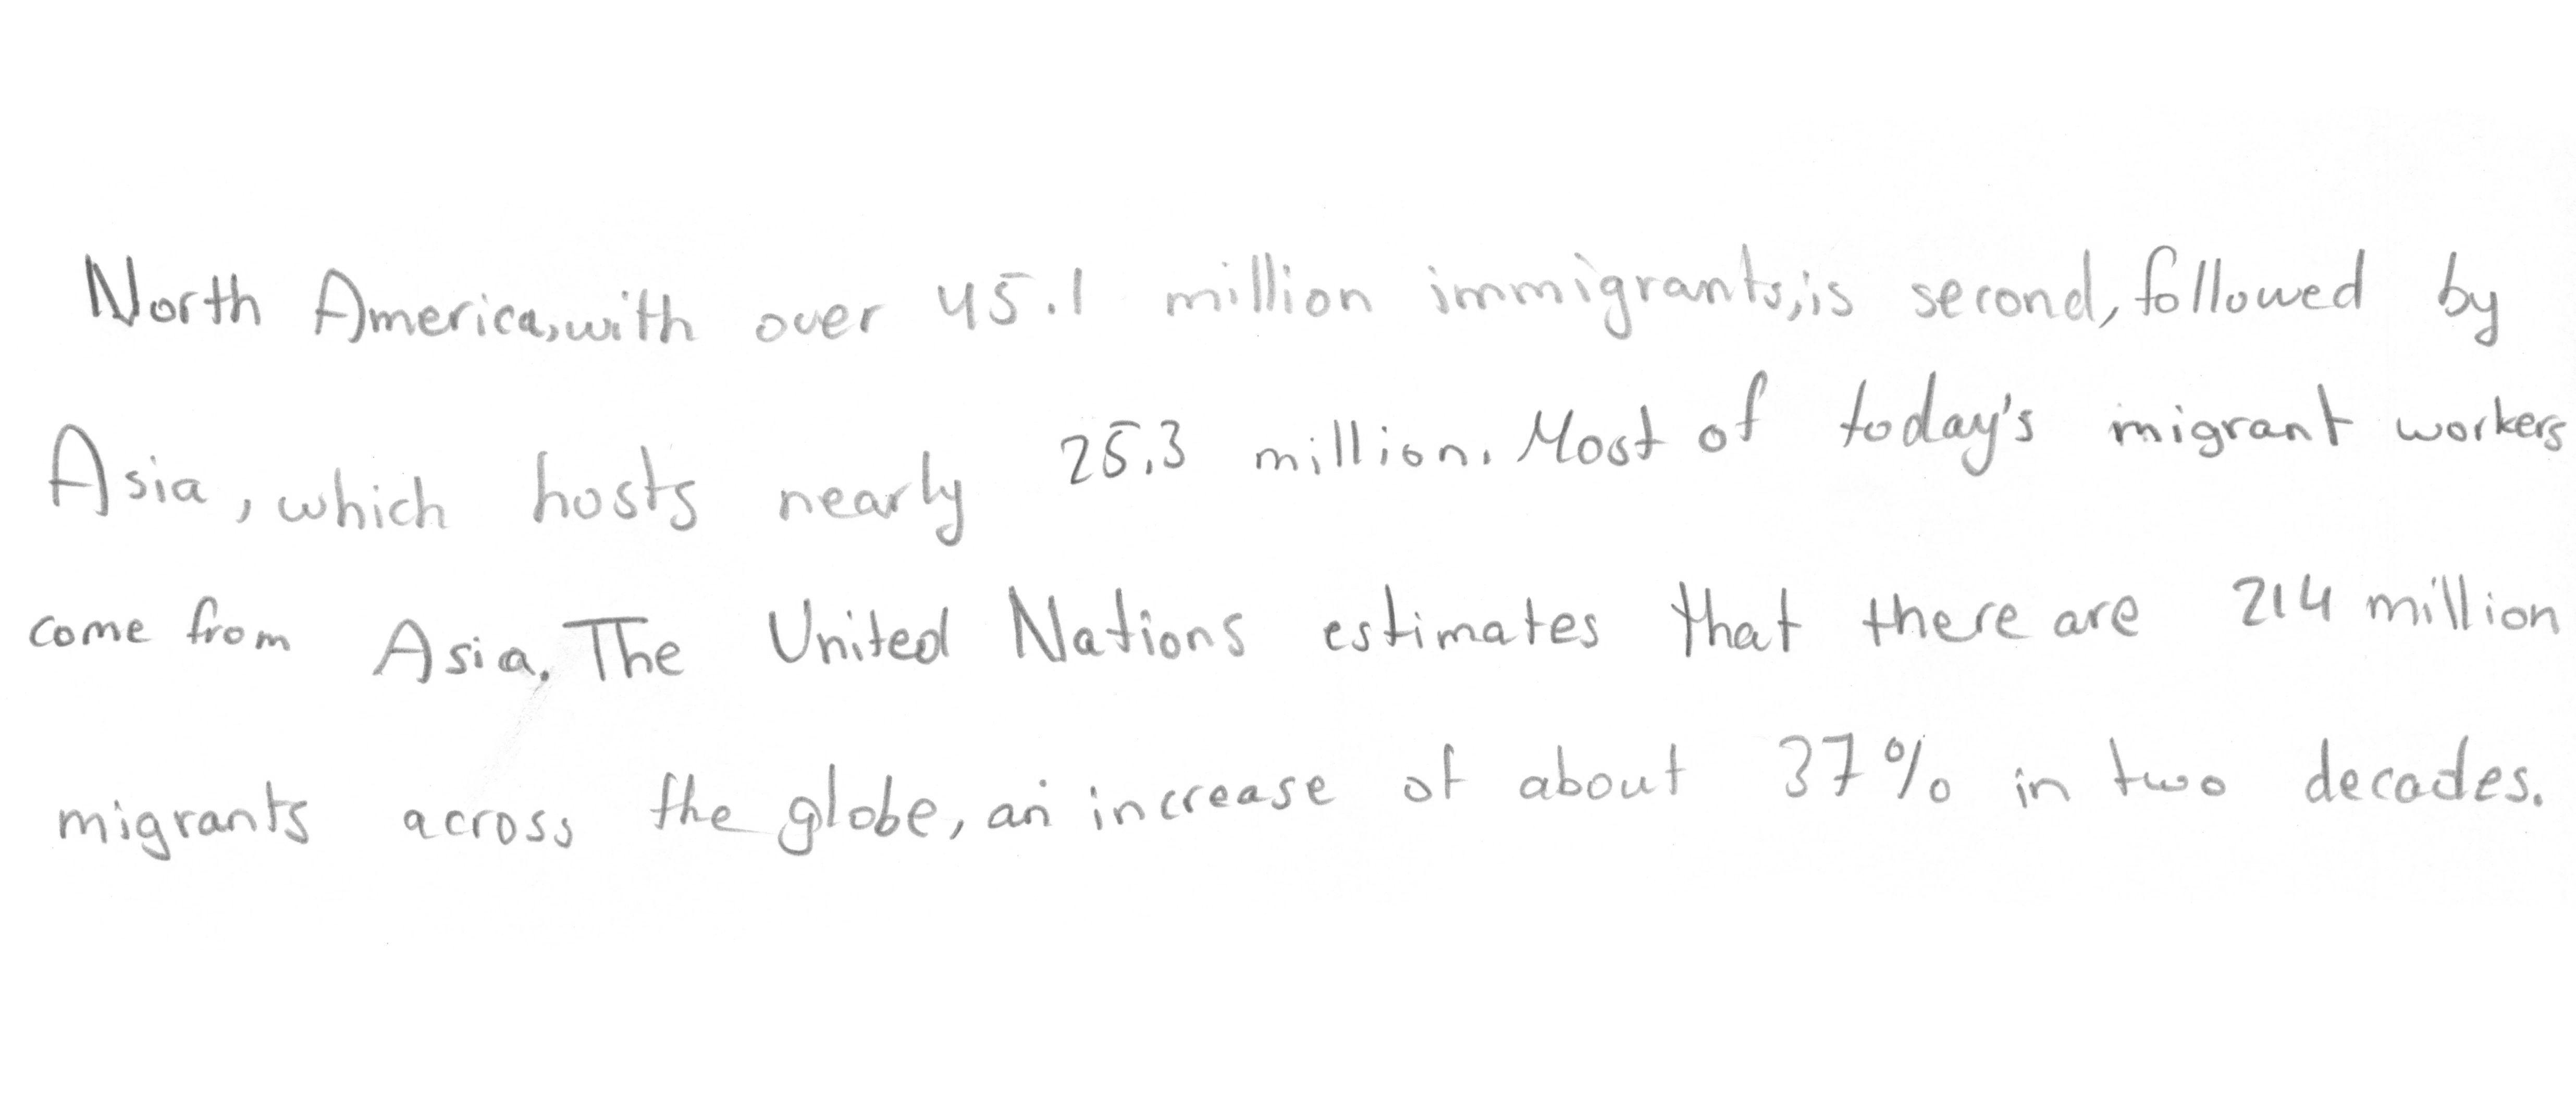 North America, with over 45.1 million immigrants, is second, followed by
Asia, which hosts nearly 25.3 million. Most of today's migrant workers
come from Asia. The United Nations estimates that there are 214 million
migrants across the globe, an increase of about 37% in two decades.